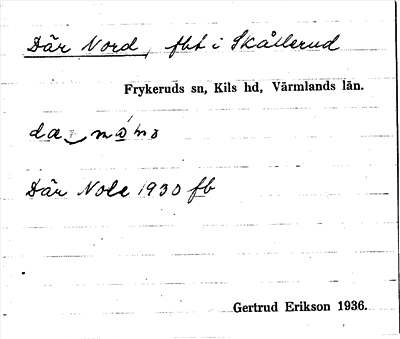 Där Nord, fbt i Skållerud
Frykeruds sn, Kils hd, Värmlands län.
Där Nole 1930 fb
Gertrud Erikson 1936.